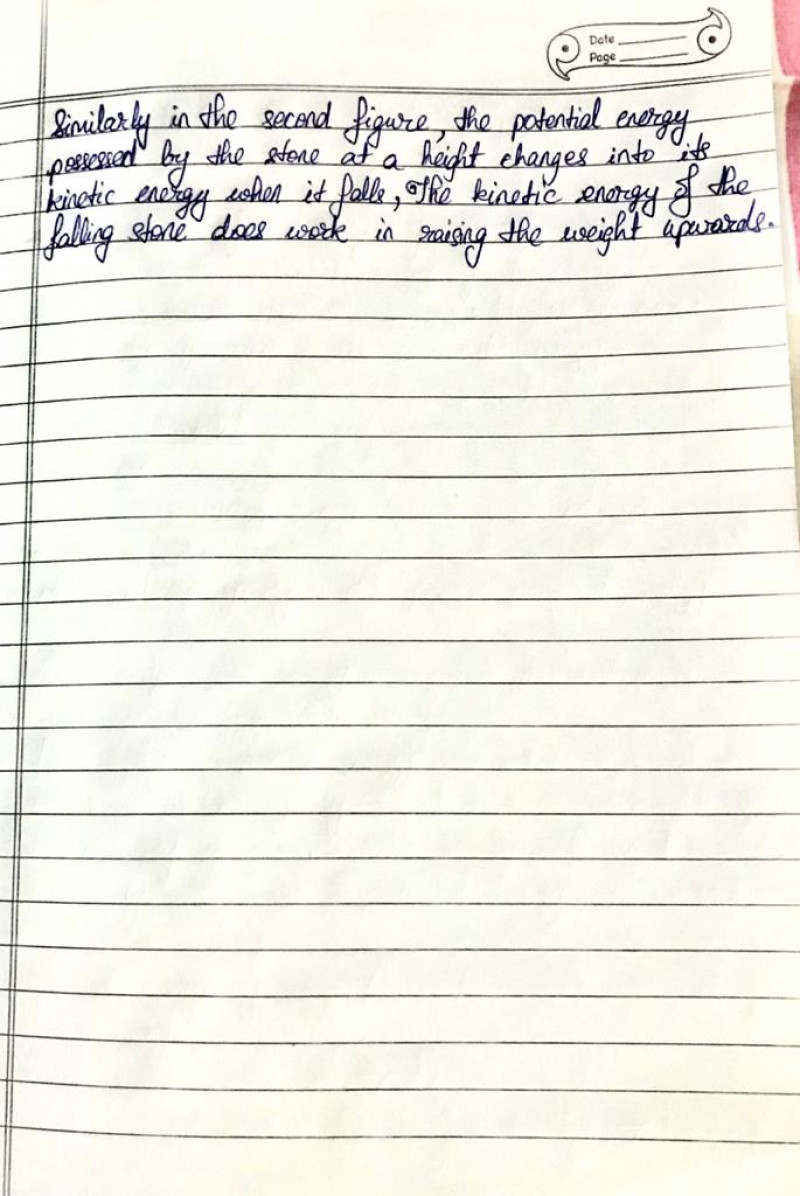 Date
Page
Similarly in the second figure, the potential energy
possessed by the stone at a height changes into its
kinetic energy when it falls, The kinetic energy of the
falling stone does work in raising the weight upwards.